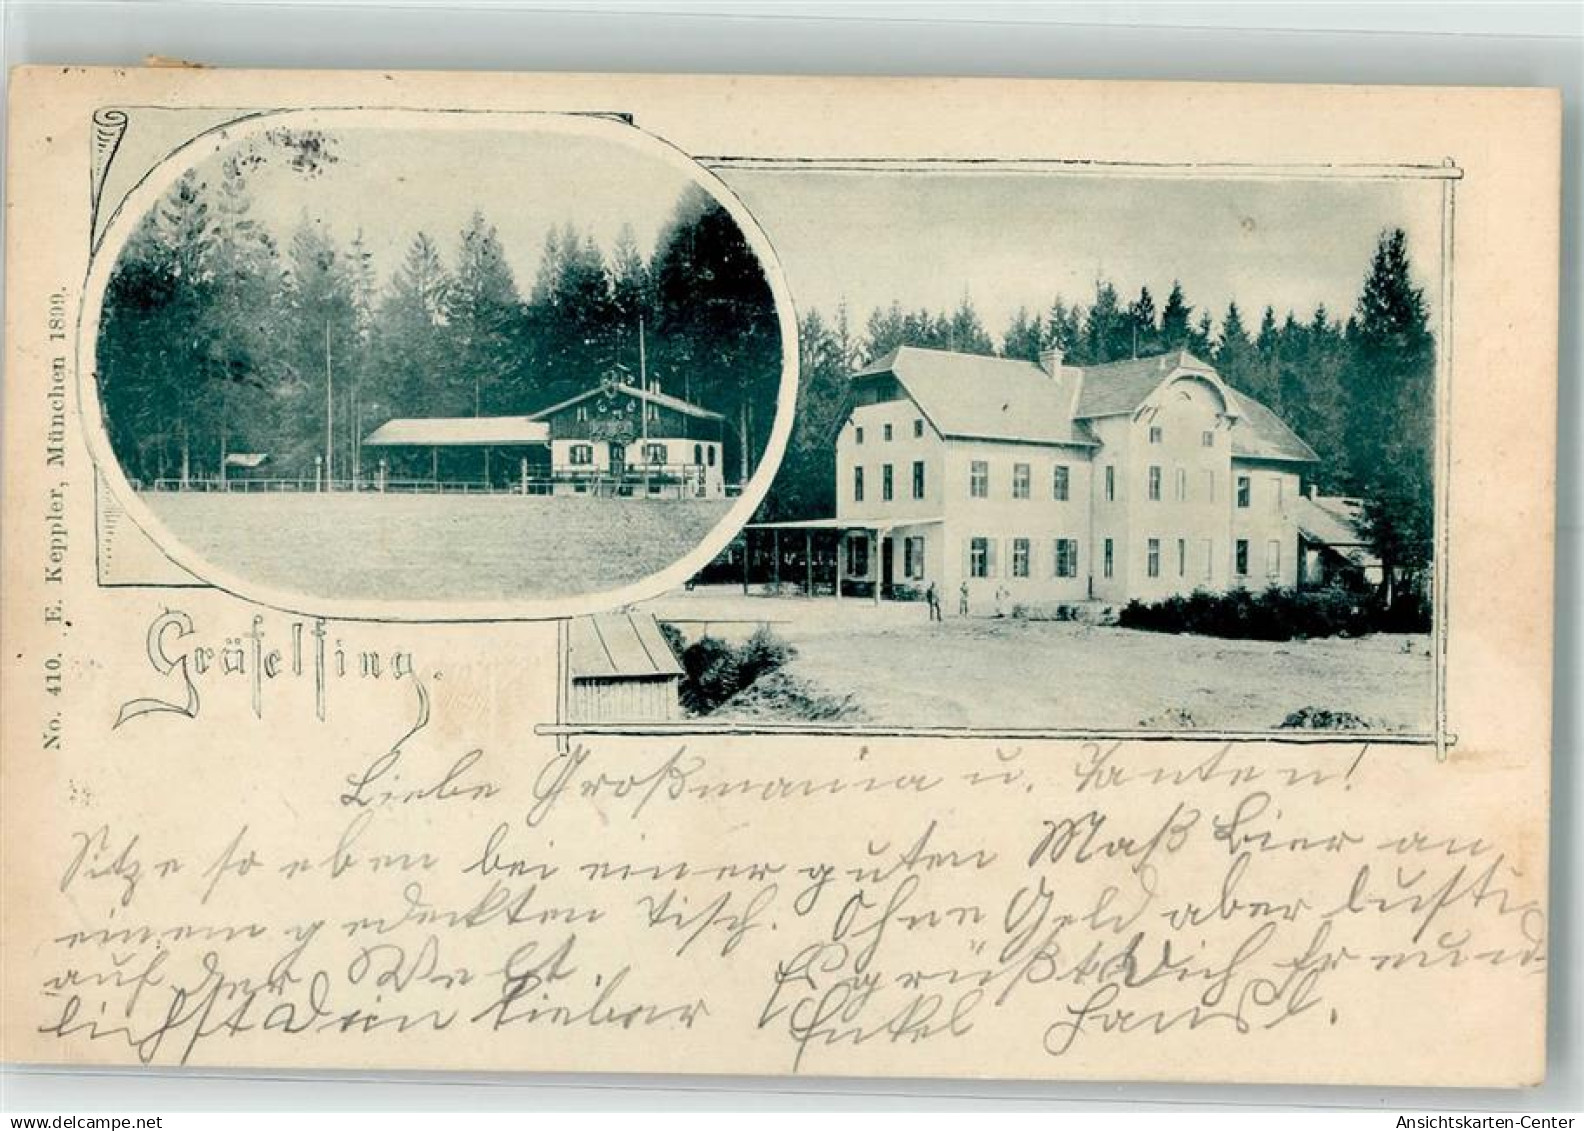 No. 410. E. Keppler, München 1899.
Gräfelfing.
Liebe Großmama u. Tanten!
Sitze so eben bei einer guten Maß Bier an
einem gedeckten Tisch. Ohne Geld aber lusti
auf der Welt. Es grüßt Dich freund-
lichst Dein lieber Enkel Hansl.
Ansichtskarten-Center